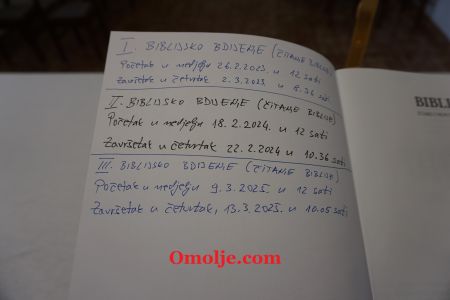 I. BIBLIJSKO BDIJENJE (ČITANJE BIBLIJE)
Početak u nedjelju 26.2.2023. u 12 sati
Završetak u četvrtak 2.3.2023. u 8.36 sati
II. BIBLIJSKO BDIJENJE (ČITANJE BIBLIJE)
Početak u nedjelju 18.2.2024. u 12 sati
Završetak u četvrtak 22.2.2024 u 10.36 sati
III. BIBLIJSKO BDIJENJE (ČITANJE BIBLIJE)
Početak u nedjelju 9.3.2025. u 12 sati
Završetak u četvrtak, 13.3.2025. u 10.05 sati
BIBL
Omolje.com